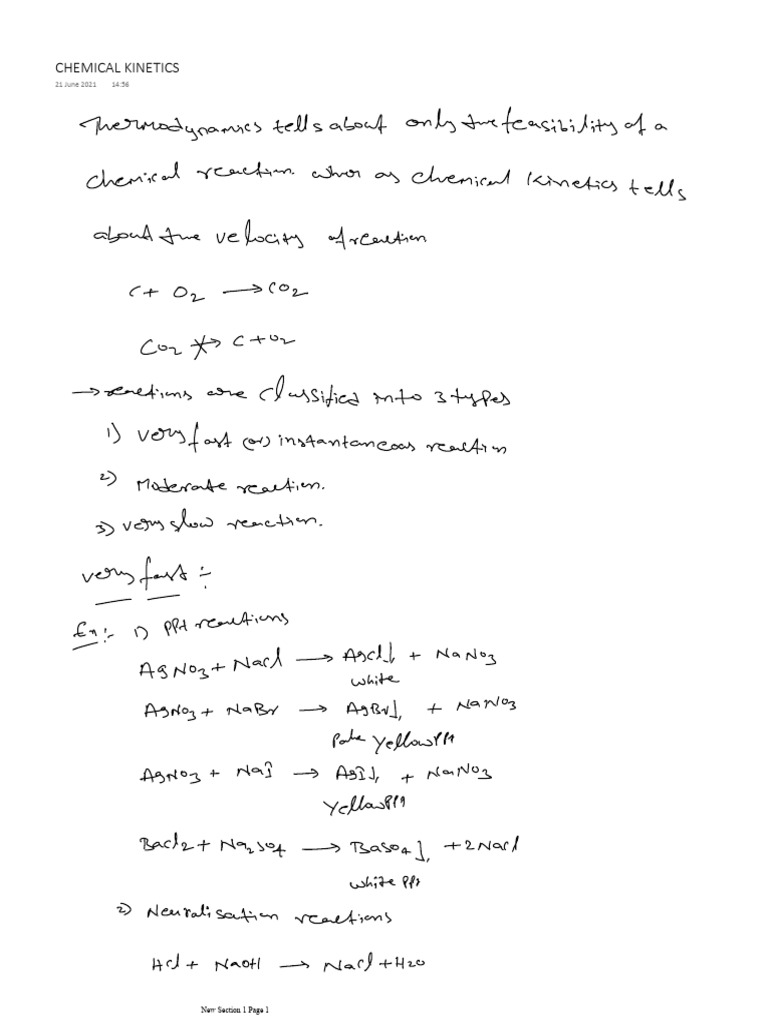 CHEMICAL KINETICS
21 June 2021 14:56
Thermodynamics tells about only the feasibility of a
chemical reaction. wher as chemical kinetics tells
about the velocity of reaction
C + O2 ⟶ CO2
CO2 ⇸ C + O2
→ reactions are classified into 3 types
1) very fast (or) instantaneous reaction
2) Moderate reaction.
3) very slow reaction.
very fast :-
Ex:- 1) PPt reactions
AgNO3 + NaCl ⟶ AgCl↓ + NaNO3
white
AgNO3 + NaBr ⟶ AgBr↓ + NaNO3
Pale yellow PPt
AgNO3 + NaI ⟶ AgI↓ + NaNO3
Yellow PPt
BaCl2 + Na2SO4 ⟶ BaSO4↓ + 2NaCl
white PPt
2) Neuralisation reactions
HCl + NaOH ⟶ NaCl + H2O
New Section 1 Page 1